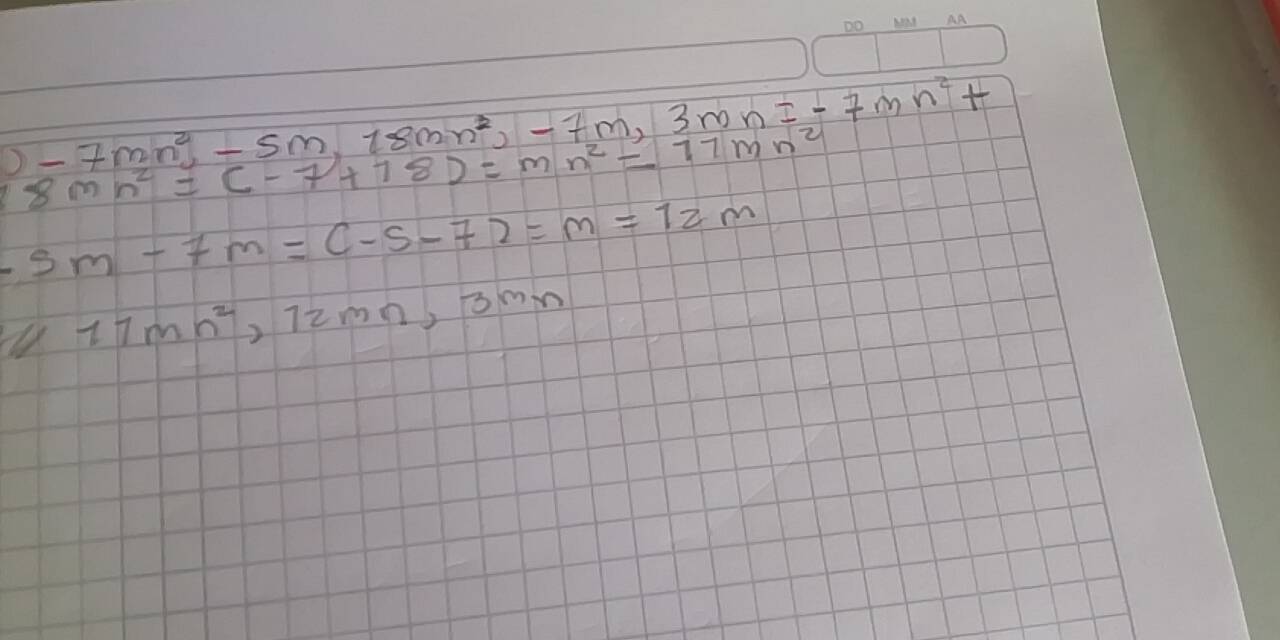 DD MM AA
) - 7mn², - 5m, 18mn², - 7m, 3mn = - 7mn² +
18mn² = (-7+18) = mn² = 11mn²
- 5m - 7m = (-5-7) = m = 12m
// 11mn², 12mn, 3mn